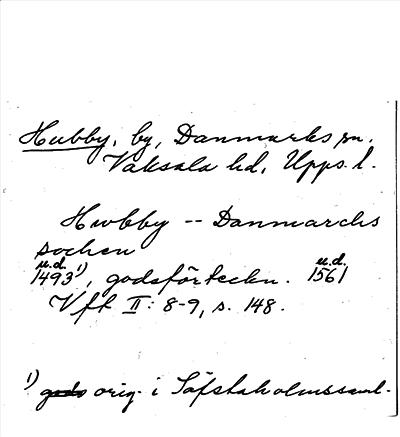 Hubby, by, Danmarks sn.
Vaksala hd, Upps. l.
Hwbby -- Danmarchs
sochen
u.d. u.d.
1493¹⁾, godsförteckn. 1561
Vft II: 8-9, s. 148.
1) orig. i Säfstaholmssaml.